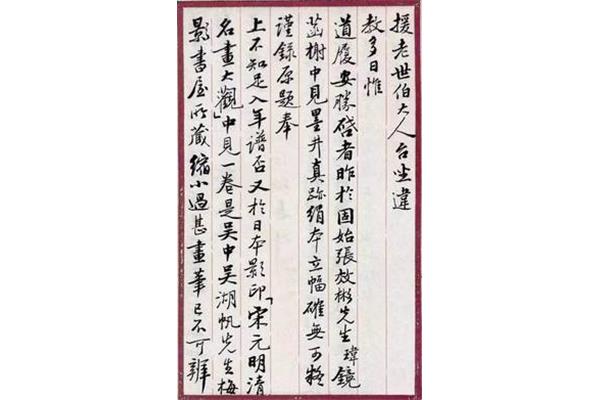 援老世伯大人台坐違
教多日惟
道履安勝啓者昨於固始張效彬先生瑋鏡
菡榭中見墨井真跡絹本立幅確無可疑
謹錄原題奉
上不知足入年譜否又於日本影印「宋元明清
名畫大觀」中見一卷是吳中吳湖帆先生梅
影書屋所藏縮小過甚畫筆已不可辨